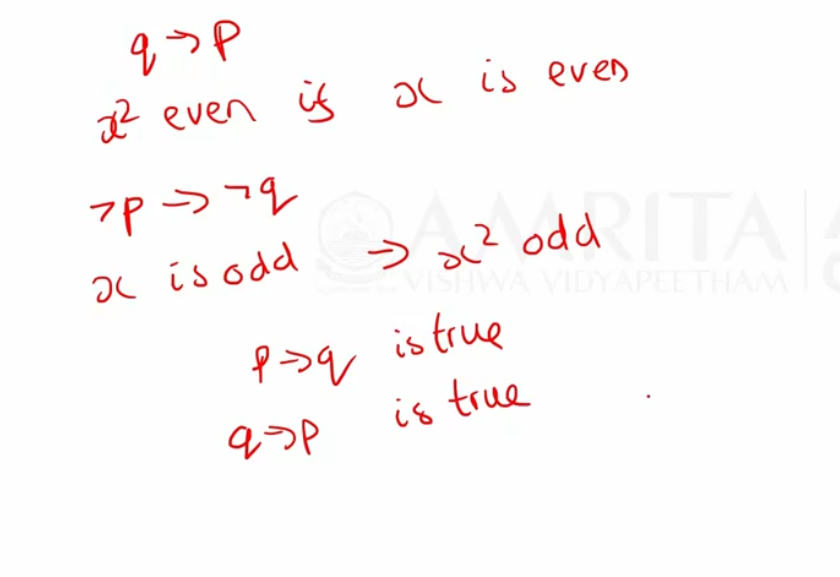 q → p
x² even if x is even
¬p → ¬q
x is odd → x² odd
p → q is true
q → p is true
AMRITA
VISHWA VIDYAPEETHAM